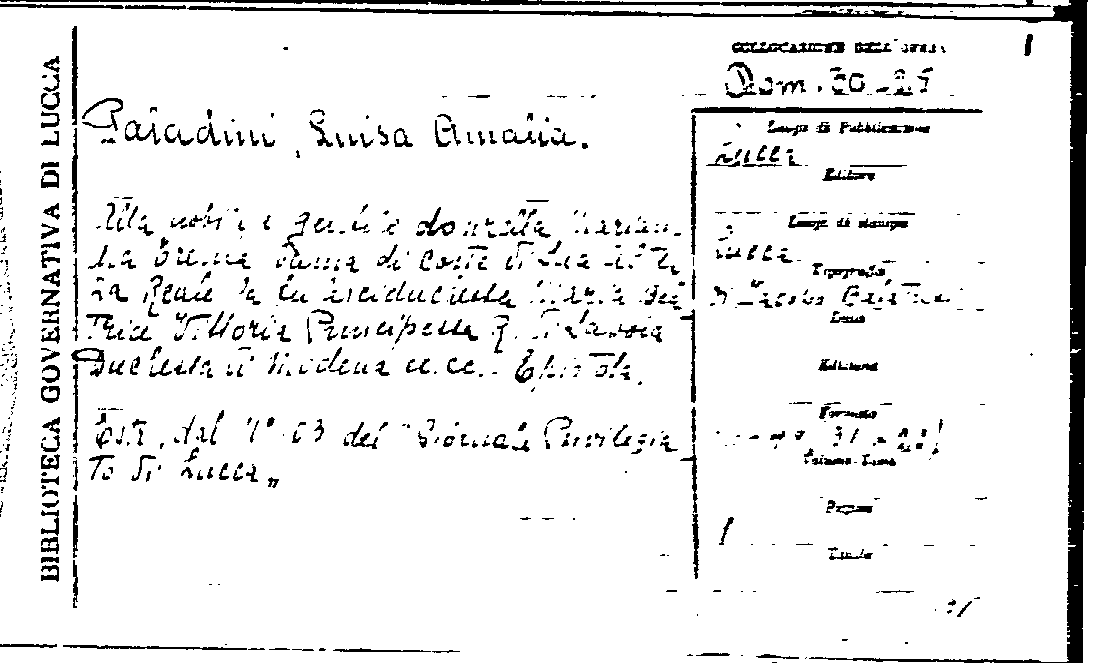 BIBLIOTECA GOVERNATIVA DI LUCCA
COLLOCAZIONE DELL'OPERA
1
Dom. 30-25
Paladini, Luisa Amalia.
Luogo di Pubblicazione
Lucca
Editore
Alla nobile e gentile donzella Marian-
na Brema Dama di Corte di Sua Altez-
za Reale la
Arciduchessa Maria Bea-
trice Vittoria Principessa R. di Savoia
Duchessa di Modena ec. ec. Epistola.
Luogo di stampa
Lucca
Tipografia
Data
Edizione
Estr. dal N° 03 del "Giornale Privilegia-
to di Lucca„
Formato
Volume-Tomo
Pagine
1
Tavole